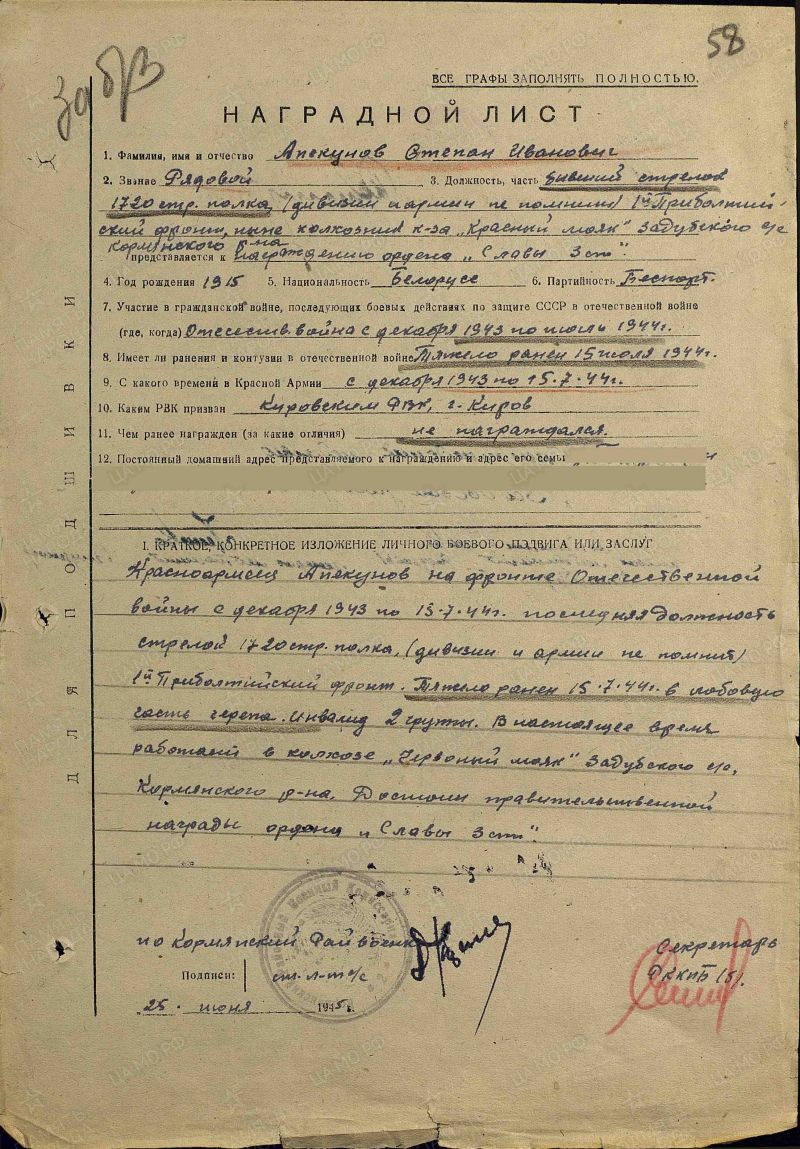 58
ВСЕ ГРАФЫ ЗАПОЛНЯТЬ ПОЛНОСТЬЮ.
НАГРАДНОЙ ЛИСТ
1. Фамилия, имя и отчество Апекунов Степан Иванович
2. Звание Рядовой 3. Должность, часть бывший стрелок
1720 стр. полка, (дивизии и армии не помнит) 1й Прибалтий-
ский фронт, ныне колхозник к-за „Красный маяк" Задубского с/с
Кормянского р-на
(представляется к награждению ордена „Славы 3 ст".
4. Год рождения 1915 5. Национальность Белорусс 6. Партийность Беспарт.
7. Участие в гражданской войне, последующих боевых действиях по защите СССР в отечественной войне
(где, когда) Отечеств. война с декабря 1943 по июль 1944 г.
8. Имеет ли ранения и контузии в отечественной войне Тяжело ранен 15 июля 1944 г.
9. С какого времени в Красной Армии с декабря 1943 по 15.7.44 г.
10. Каким РВК призван Кировским РВК, г. Киров
11. Чем ранее награжден (за какие отличия) не награждался.
12. Постоянный домашний адрес представляемого к награждению и адрес его семьи
I. КРАТКОЕ, КОНКРЕТНОЕ ИЗЛОЖЕНИЕ ЛИЧНОГО БОЕВОГО ПОДВИГА ИЛИ ЗАСЛУГ
Красноармеец Апекунов на фронте Отечественной
войны с декабря 1943 по 15.7.44 г. последняя должность
стрелок 1720 стр. полка, (дивизии и армии не помнит)
1й Прибалтийский фронт. Тяжело ранен 15.7.44 г. в лобовую
часть черепа. Инвалид 2 группы. В настоящее время
работает в колхозе „Червоный маяк" Задубского с/с,
Кормянского р-на. Достоин правительственной
награды ордена „Славы 3 ст".
Кормянский Райвоенком
Секретарь
Подписи: ст. л-т а/с
РККПБ(б).
25. июня 1945 г.
ДЛЯ ПОДШИВКИ